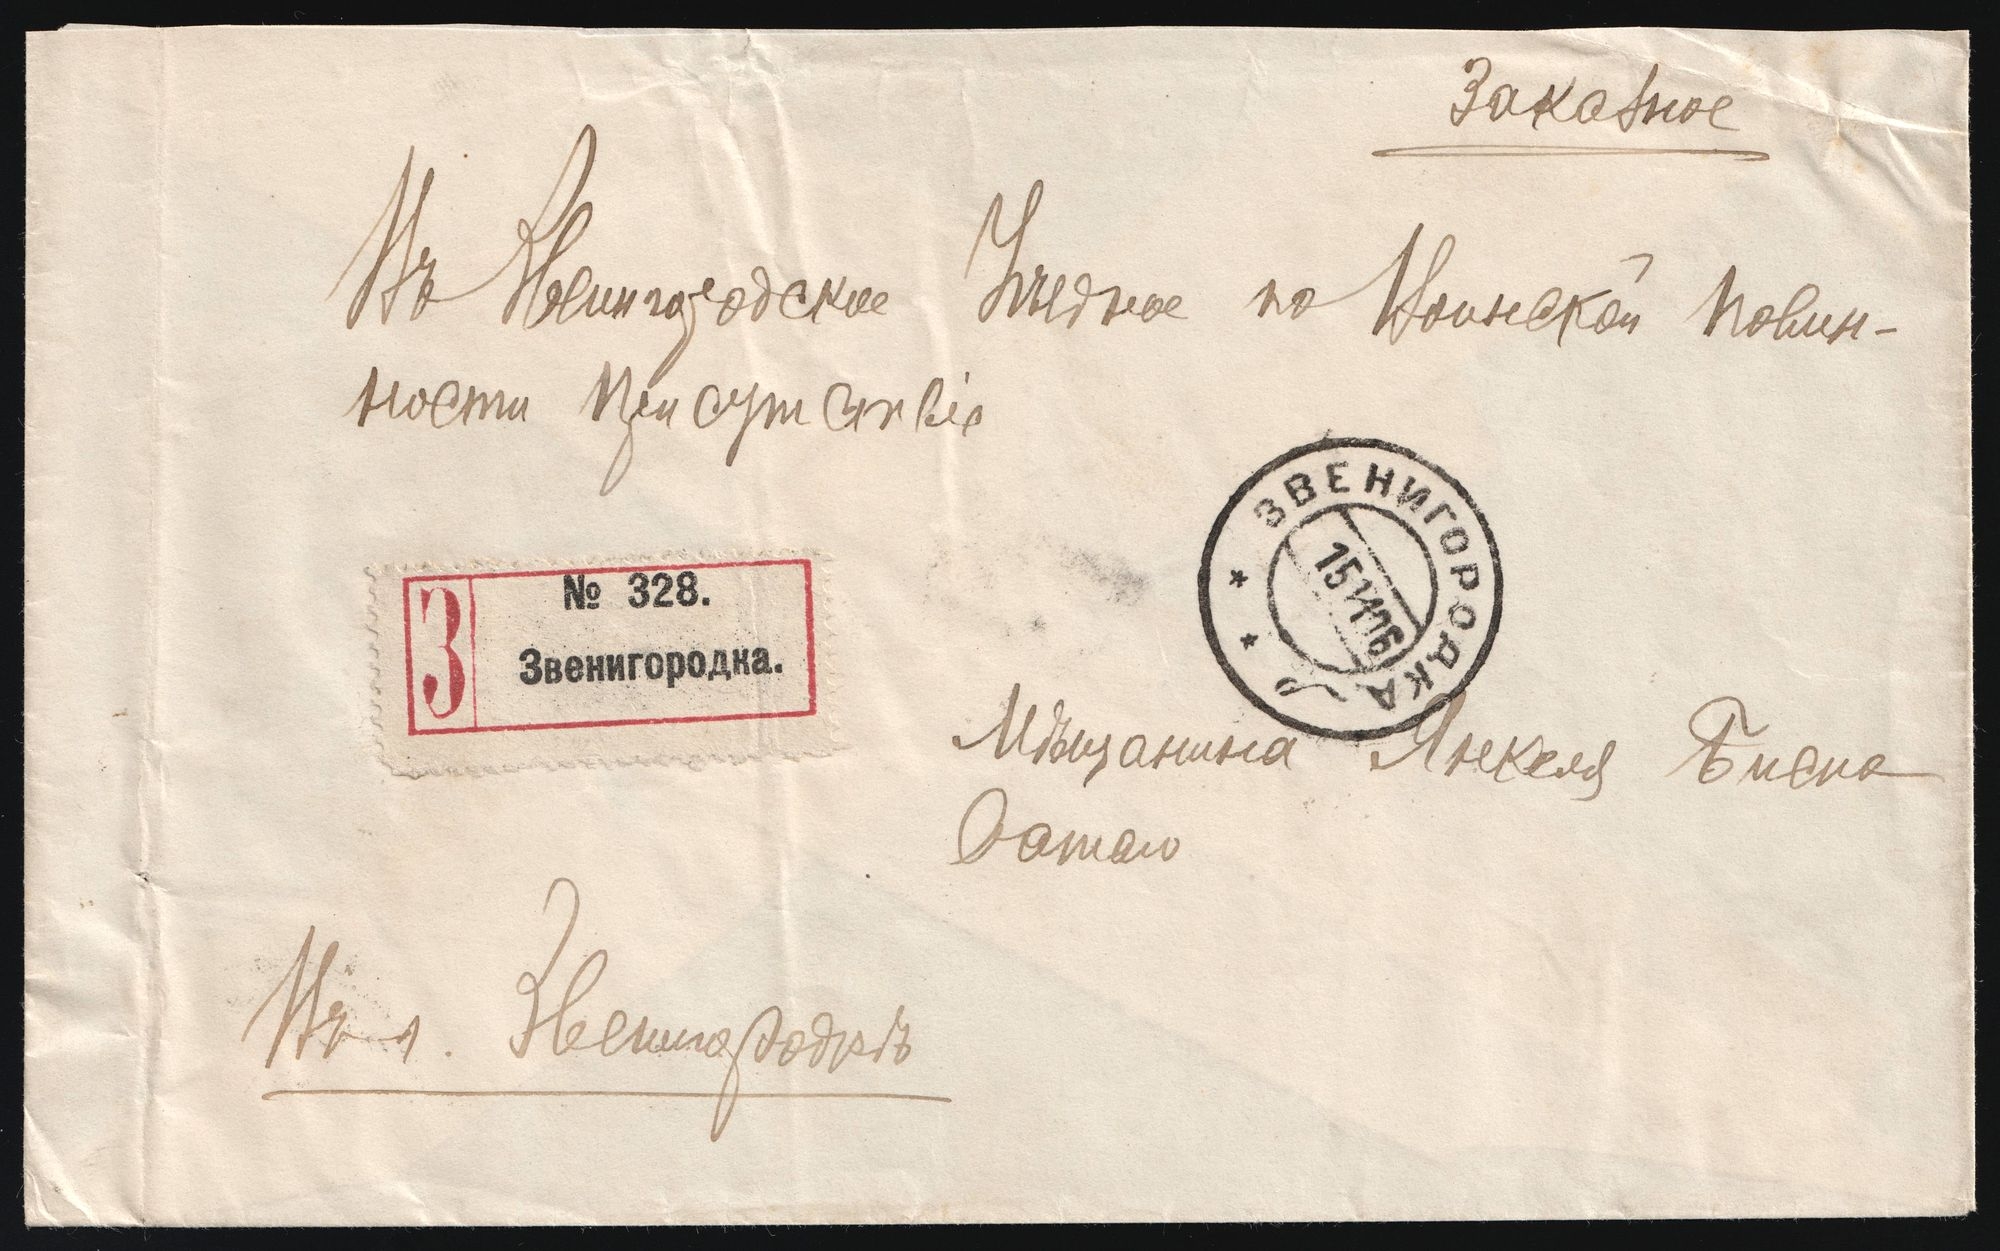 Заказное
Въ Звенигородское Уѣздное по Воинской Повин-
ности Присутствіе
З
№ 328.
Звенигородка.
ЗВЕНИГОРОДКА
15
16
Мѣщанина Янкеля
Въ г. Звенигородкѣ